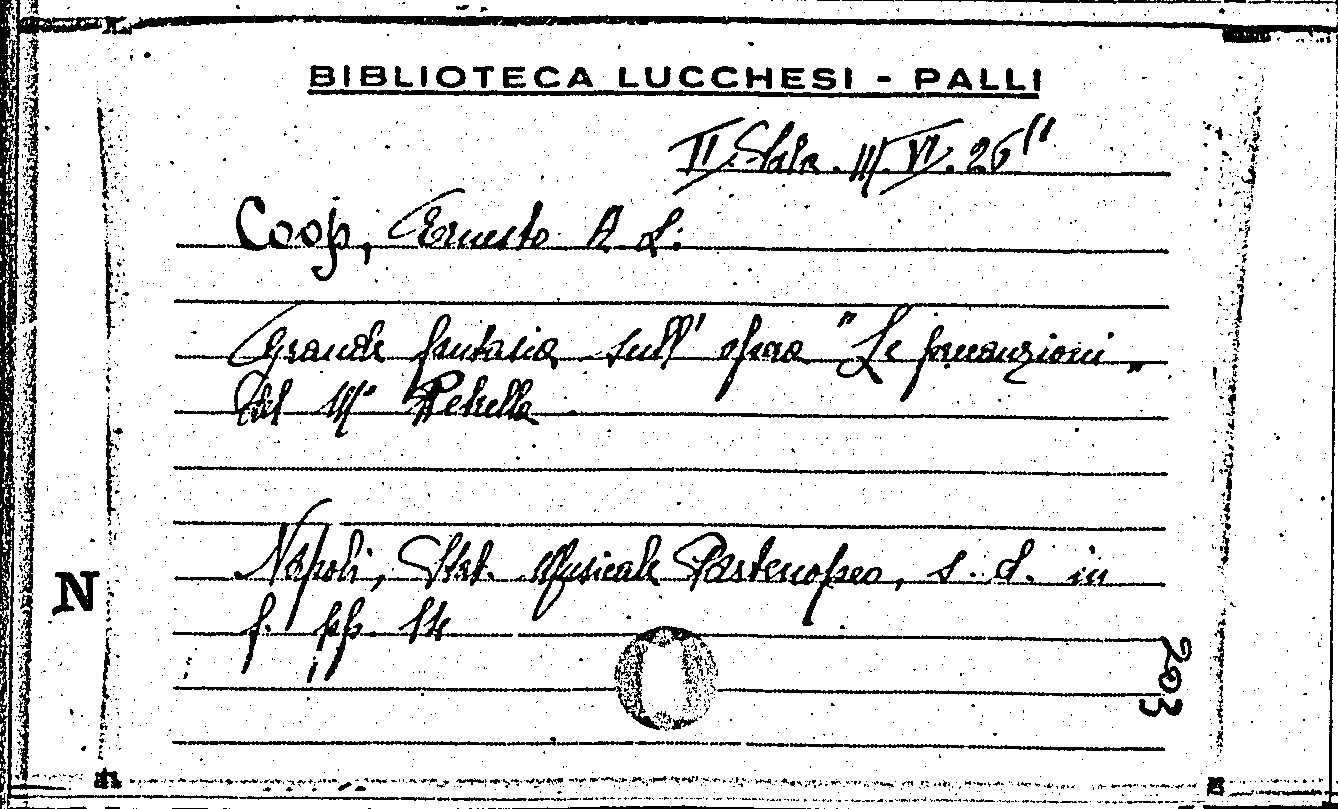 BIBLIOTECA LUCCHESI - PALLI
II Sala. M. VI. 26"
Coop, Ernesto A. L.
Grande fantasia sull' opera "Le precauzioni"
del M° Petrella
Napoli, Stab. Musicale Partenopeo, s. d. in
f. pp. 14
N
203